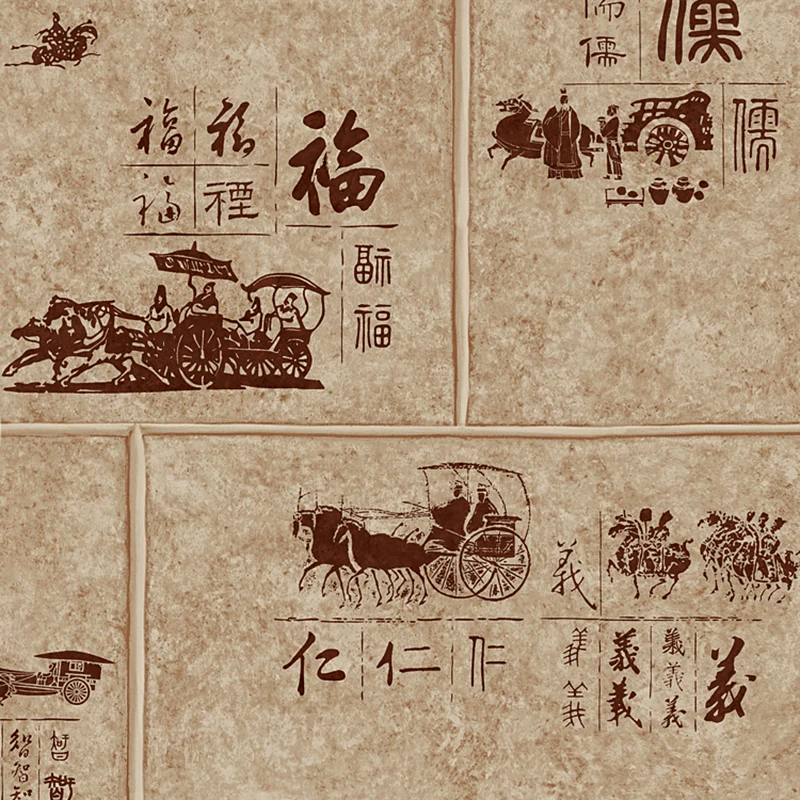 福 福 福
福 禋
福
福
儒 儒
儒
儒
義
仁 仁 仁
義 義 義 義
義 義 義
義
智 智
智 智
智